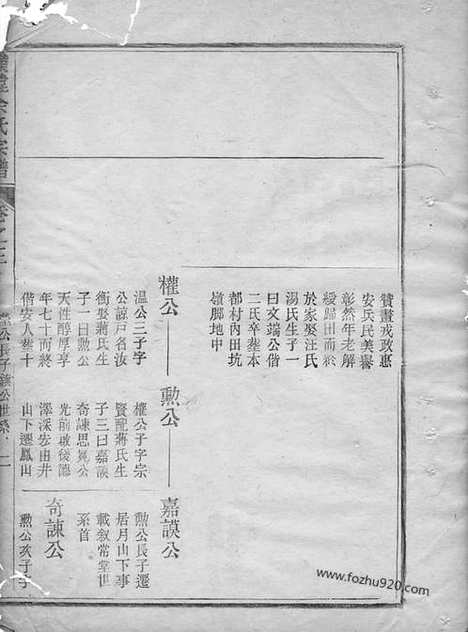 贊畫戎政惠
安兵民美譽
彰然年老解
綬歸田而終
於家娶汪氏
湯氏生子一
曰文端公偕
二氏卒葬本
都村內田坑
嶺脚地中
權公——勲公——嘉謨公
溫公三子字
公諒戸名汝
衡娶蔣氏生
子一曰勲公
天性醇厚享
年七十而終
偕安人葬十
權公子字宗
賢配蔣氏生
子三曰嘉謨
奇諫思冕公
光前啟後德
澤深宏由井
山下遷鳳山
勲公長子遷
居月山下事
載敘常堂世
系首
奇諫公
勲公次子子
余氏宗譜
卷之二
公長子謨公世系
www.fozhu920.com